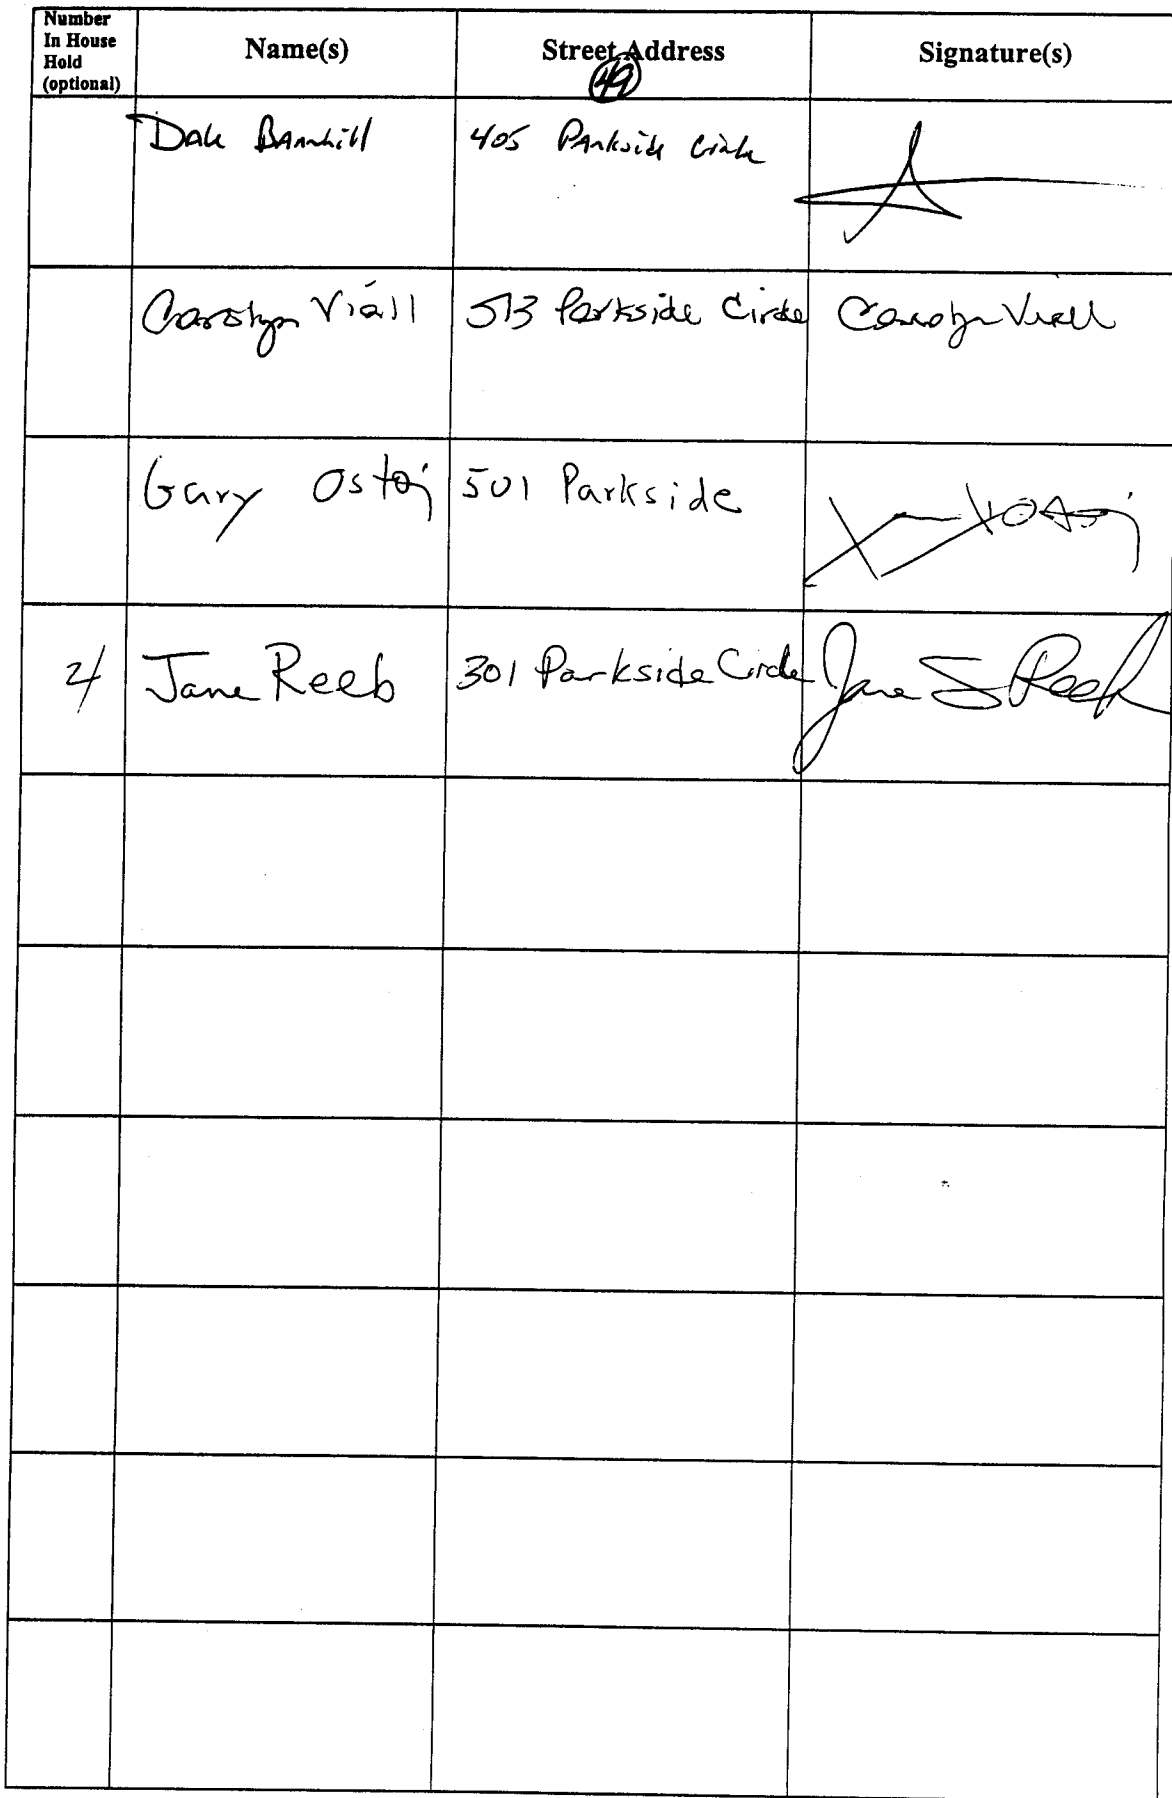 Number
In House
Hold
(optional)
Name(s)
Street Address
Signature(s)
49
Dale Barnhill 405 Parkside Circle
Carolyn Viall 513 Parkside Circle Carolyn Viall
Gary Ostoj 501 Parkside
Jane Reeb 301 Parkside Circle Jane S Reeb